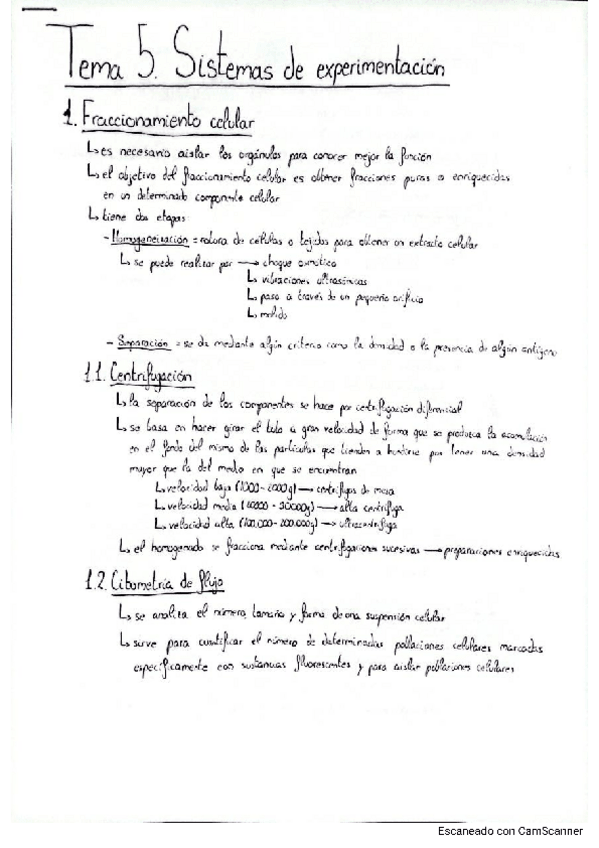 Tema 5. Sistemas de experimentación
1. Fraccionamiento celular
↳ es necesario aislar los orgánulos para conocer mejor la función
↳ el objetivo del fraccionamiento celular es obtener fracciones puras o enriquecidas
en un determinado componente celular
↳ tiene dos etapas:
- Homogeneización = rotura de células o tejidos para obtener un extracto celular
↳ se puede realizar por → choque osmótico
↳ vibraciones ultrasónicas
↳ paso a través de un pequeño orificio
↳ molido
- Separación = se da mediante algún criterio como la densidad o la presencia de algún antígeno
1.1. Centrifugación
↳ la separación de los componentes se hace por centrifugación diferencial
↳ se basa en hacer girar el tubo a gran velocidad de forma que se produzca la acumulación
en el fondo del mismo de las partículas que tienden a hundirse por tener una densidad
mayor que la del medio en que se encuentran
↳ velocidad baja (1000-2000g) → centrífugas de mesa
↳ velocidad media (10000-30000g) → alta centrífuga
↳ velocidad alta (100.000-200.000g) → ultracentrífuga
↳ el homogenado se fracciona mediante centrifugaciones sucesivas → preparaciones enriquecidas
1.2. Citometría de flujo
↳ se analiza el número, tamaño y forma de una suspensión celular
↳ sirve para cuantificar el número de determinadas poblaciones celulares marcadas
específicamente con sustancias fluorescentes y para aislar poblaciones celulares
Escaneado con CamScanner